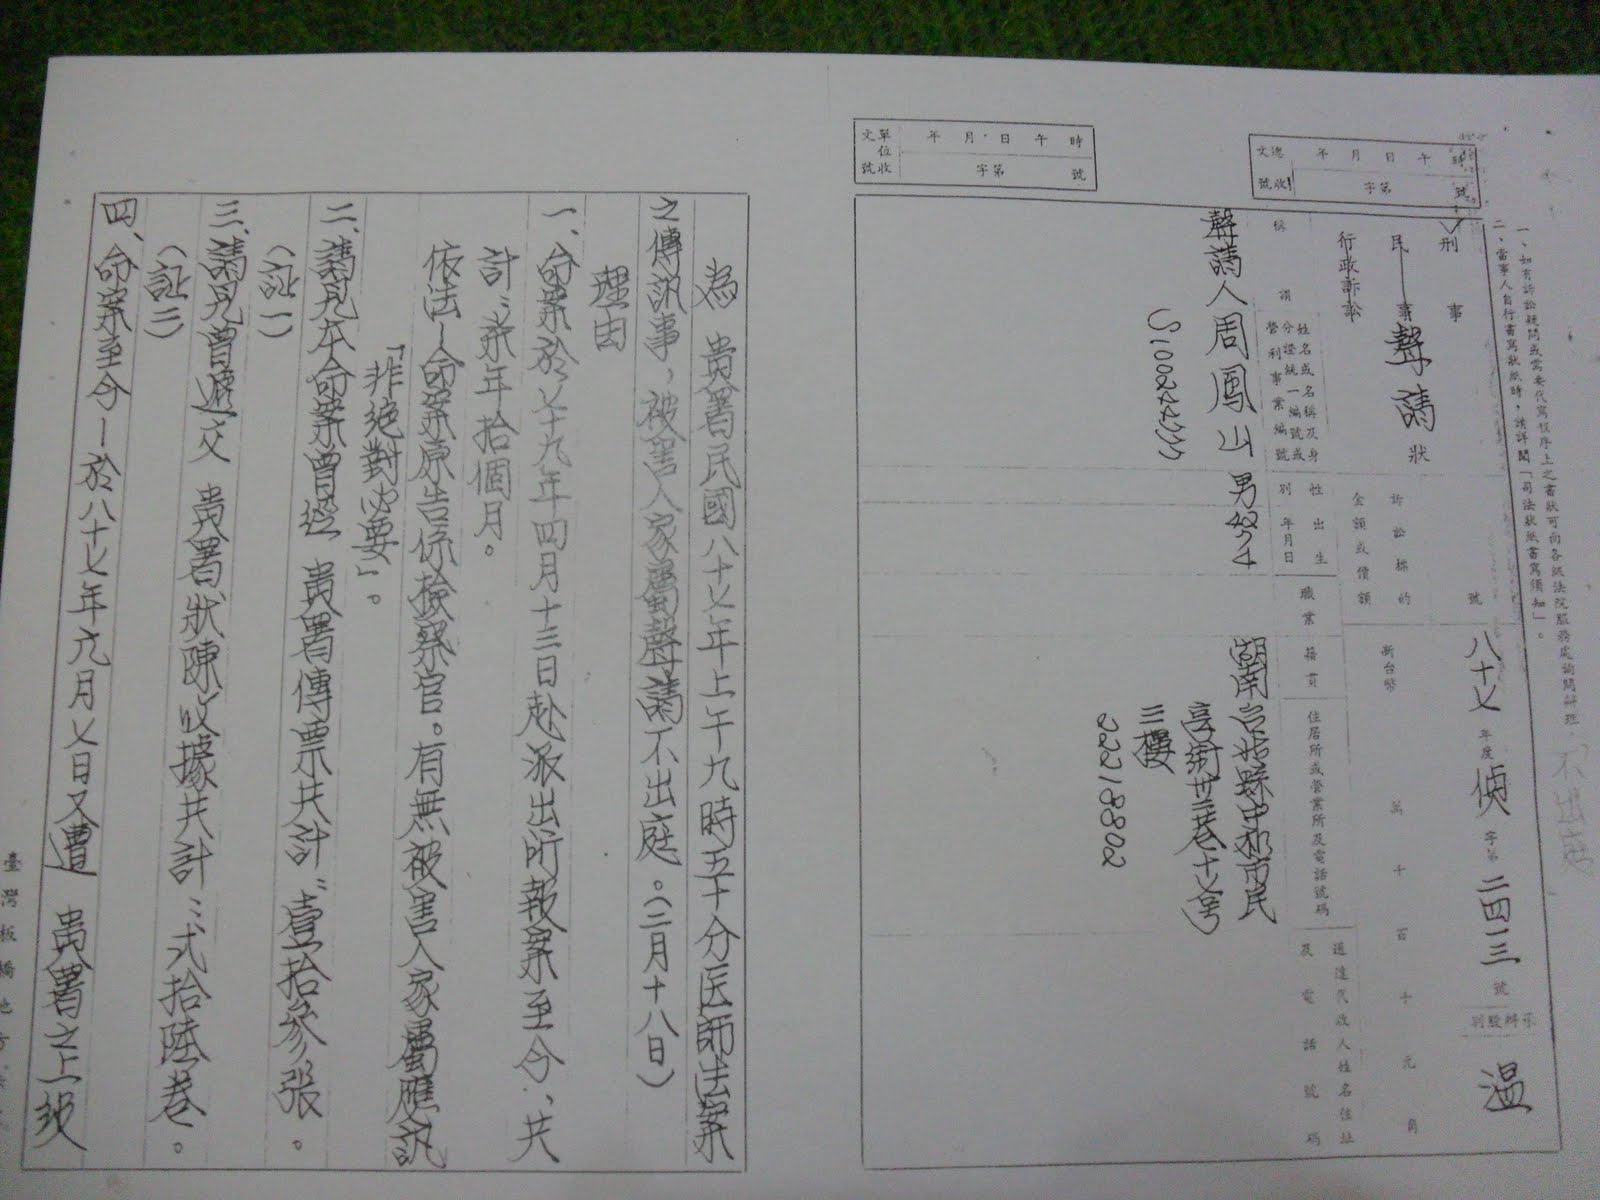 一、如有訴訟疑問或需委代寫程序上之書狀可向各級法院服務處詢問辦理。
二、當事人自行書寫狀紙時，請詳閱「司法狀紙書寫須知」。
不出庭
總收文號
年 月 日 午 時
字第 號
單位收文號
年 月 日 午 時
字第 號
刑 事
民 事 聲請 狀
行政訴訟
號 八十七 年度 偵 字第 二四三 號 承辦股別 溫
訴訟標的金額或價額
新台幣 萬 千 百 十 元 角
稱謂
姓名或名稱及身分證統一編號或營利事業編號
性別
出生年月日
職業
籍貫
住居所或營業所及電話號碼
送達代收人姓名住址及電話號碼
聲請人周鳳山 男 湖南 台北縣中和市民
享街卅三巷十七號
三樓
22218802
為 貴署民國八十七年上午九時五十分医師法案
之傳訊事，被害人家屬聲請不出庭。（二月十八日）
理由
一、命案於七十九年四月十三日赴派出所報案至今，共
計：柒年拾個月。
依法－命案原告係檢察官。有無被害人家屬應訊
「非絕對必要」。
二、請見本命案曾送 貴署傳票共計：壹拾參張。
（証一）
三、請見曾遞交 貴署狀陳收據共計：弍拾陸卷。
（証二）
四、命案至今－於八十七年六月七日又遭 貴署之上級
臺灣板橋地方